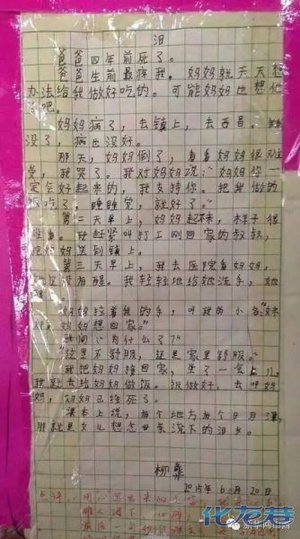 泪
爸爸四年前死了。
爸爸生前最疼我，妈妈就天天想
办法给我做好吃的。可能妈妈也想他
了吧。
妈妈病了，去镇上，去西昌。
没了，病也没好。
那天，妈妈倒了，看看妈妈很难
受，我哭了。我对妈妈说：“妈妈你一
定会好起来的，我支持你。把我做的
饭吃了，睡睡觉，就好了。”
第二天早上，妈妈起不来，样子很
难看。我赶紧叫打工刚回家的叔叔，
把妈妈送到镇上。
第三天早上，我去医院看妈妈，
她还没有醒。我轻轻地给她洗手，她
醒了。
妈妈拉着我的手，叫我的小名：
妈妈想回家。”
我问：“为什么了？”
“这里不舒服，还是家里舒服。”
我把妈妈接回家，坐了一会儿，
我就去给妈妈做饭。饭做好，去叫妈
妈，妈妈已经死了。
课本上说，有个地方有个日月潭，
那就是女儿想念母亲流下的泪水。
柳彝
2015年6月20日
化龙巷